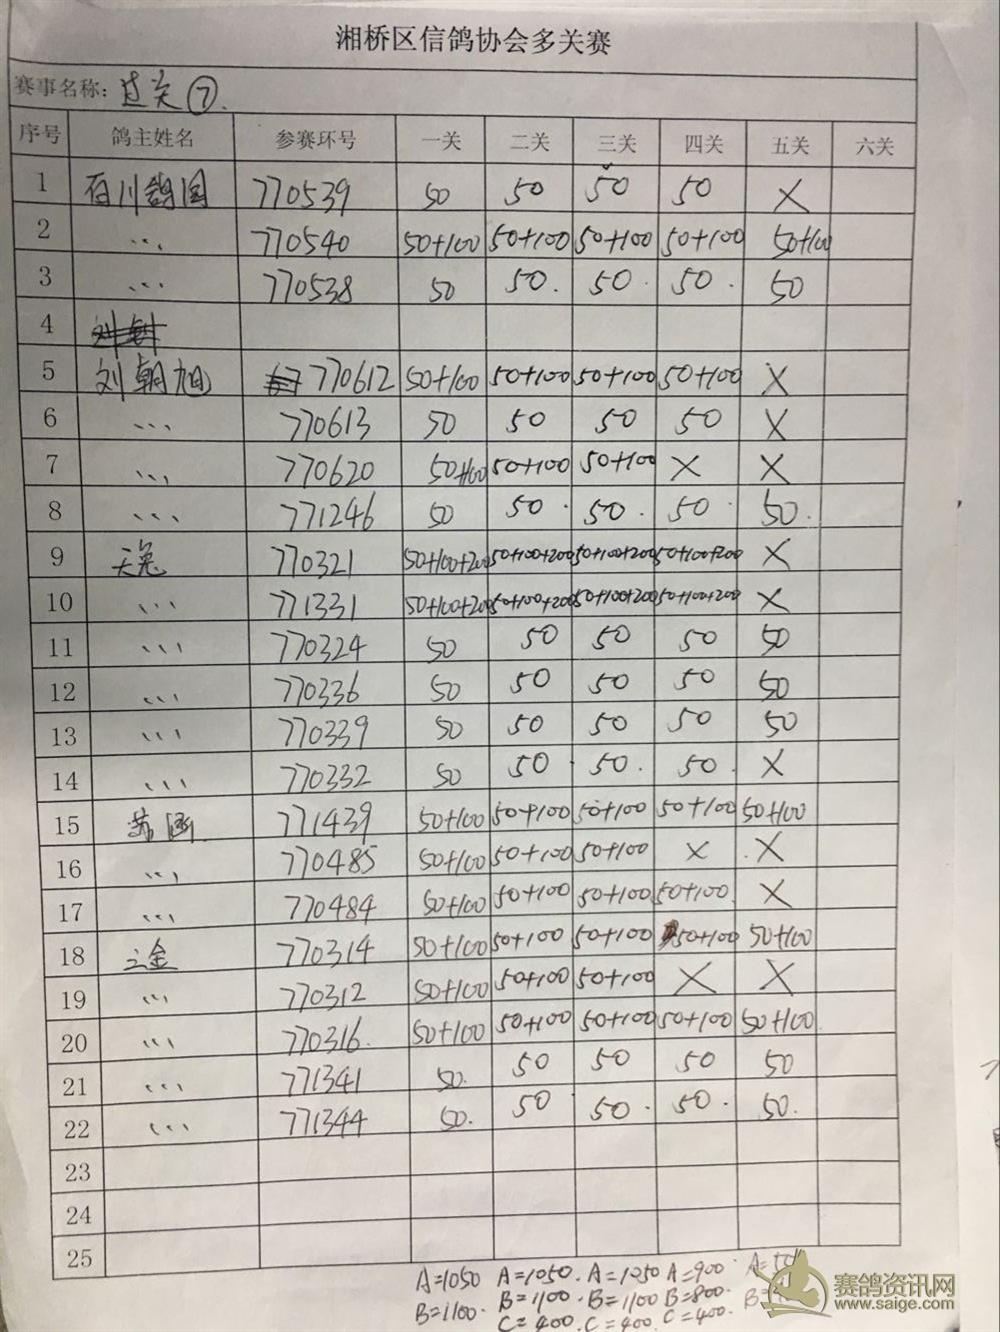 湘桥区信鸽协会多关赛
赛事名称: 过关⑦.
序号 鸽主姓名 参赛环号 一关 二关 三关 四关 五关 六关
1 百川鸽园 770539 50 50 50 50 X
2 ... 770540 50+100 50+100 50+100 50+100 50+100
3 ... 770538 50 50. 50. 50. 50
4
5 刘朝旭 770612 50+100 50+100 50+100 50+100 X
6 ... 770613 50 50 50 50 X
7 ... 770620 50+100 50+100 50+100 X X
8 ... 771246 50 50. 50. 50. 50.
9 天兔 770321 50+100+200 50+100+200 50+100+200 50+100+200 X
10 ... 771331 50+100+200 50+100+200 50+100+200 50+100+200 X
11 ... 770324 50 50 50 50 50
12 ... 770336 50 50 50 50 50
13 ... 770339 50 50 50 50 50
14 ... 770332 50 50. 50. 50. X
15 771439 50+100 50+100 50+100 50+100 50+100
16 ... 770485 50+100 50+100 50+100 X X
17 ... 770484 50+100 50+100 50+100 50+100 X
18 770314 50+100 50+100 50+100 50+100 50+100
19 ... 770312 50+100 50+100 50+100 X X
20 ... 770316. 50+100 50+100 50+100 50+100 50+100
21 ... 771341 50. 50 50 50 50
22 ... 771344 50. 50 50. 50. 50.
23
24
25
A=1050 A=1050. A=1050 A=900. A=
B=1100. B=1100. B=1100 B=800. B=
C=400. C=400. C=400.
赛鸽资讯网
www.saige.com